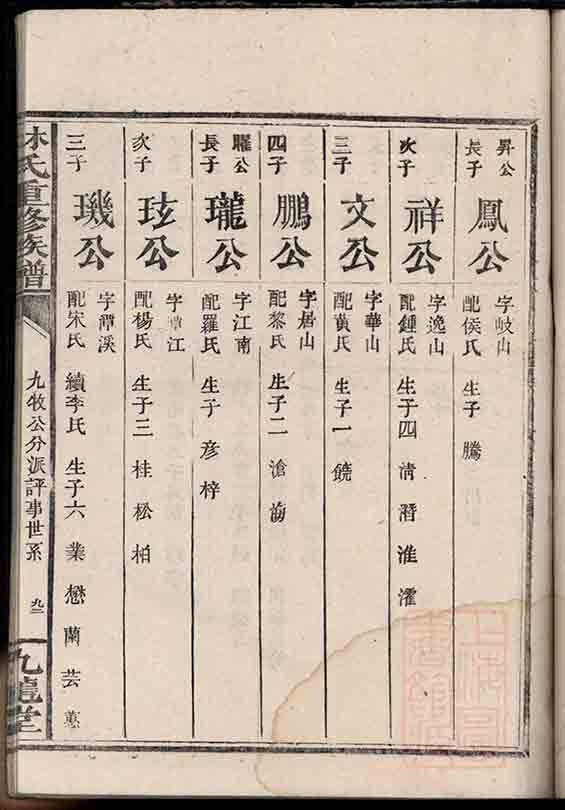 昇公
長子
鳳公
字岐山
配侯氏 生子 騰
次子
祥公
字逸山
配鍾氏 生子四 清 潛 淮 濯
三子
文公
字華山
配黃氏 生子一 饒
四子
鵬公
字居山
配黎氏 生子二 滄
曜公
長子
瓏公
字江南
配羅氏 生子 彦 梓
次子
玹公
字潭江
配楊氏 生子三 桂 松 柏
三子
璣公
字潭溪
配宋氏 續李氏 生子六 業 懋 蘭 芸 蕙
林氏重修族譜
九牧公分派評事世系
九二
九龍堂
上海圖書館藏